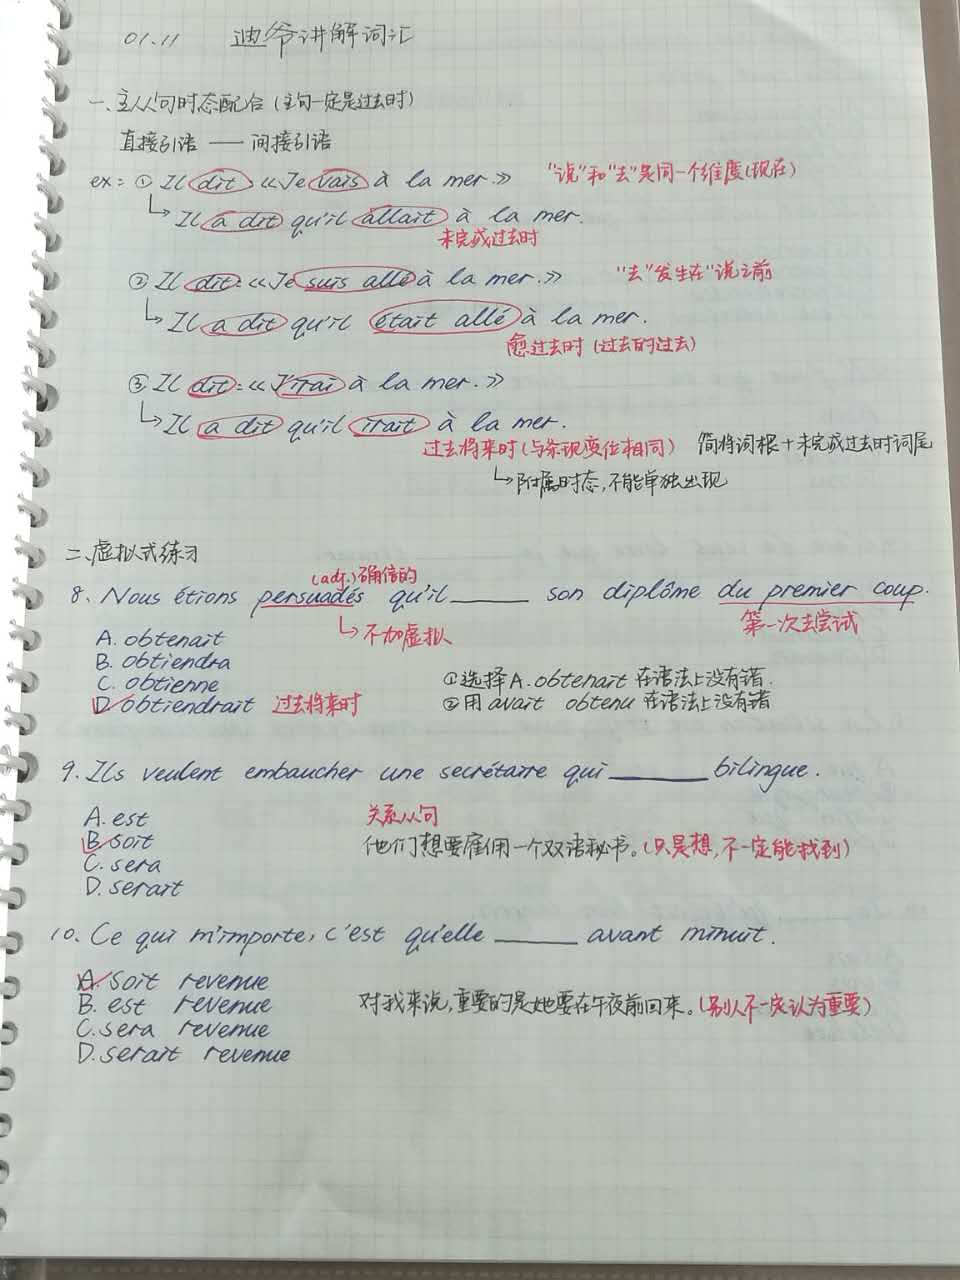 01.11 迪爷讲解词汇
一、主从句时态配合（主句一定是过去时）
直接引语 —— 间接引语
ex: ① Il dit: «Je vais à la mer.» "说"和"去"是同一个维度(现在)
↳ Il a dit qu'il allait à la mer.
未完成过去时
② Il dit: «Je suis allé à la mer.» "去"发生在"说"之前
↳ Il a dit qu'il était allé à la mer.
愈过去时 (过去的过去)
③ Il dit: «J'irai à la mer.»
↳ Il a dit qu'il irait à la mer.
过去将来时(与条现变位相同) 简将词根+未完成过去时词尾
↳ 附属时态，不能单独出现
二、虚拟式练习
(adj.)确信的
8. Nous étions persuadés qu'il ____ son diplôme du premier coup.
↳ 不加虚拟 第一次去尝试
A. obtenait
B. obtiendra
C. obtienne ①选择A. obtenait 在语法上没有错.
D. obtiendrait 过去将来时 ②用 avait obtenu 在语法上没有错
9. Ils veulent embaucher une secrétaire qui ____ bilingue.
A. est 关系从句
B. soit 他们想要雇佣一个双语秘书。(只是想，不一定能找到)
C. sera
D. serait
10. Ce qui m'importe, c'est qu'elle ____ avant minuit.
A. soit revenue
B. est revenue 对我来说，重要的是她要在午夜前回来。(别人不一定认为重要)
C. sera revenue
D. serait revenue